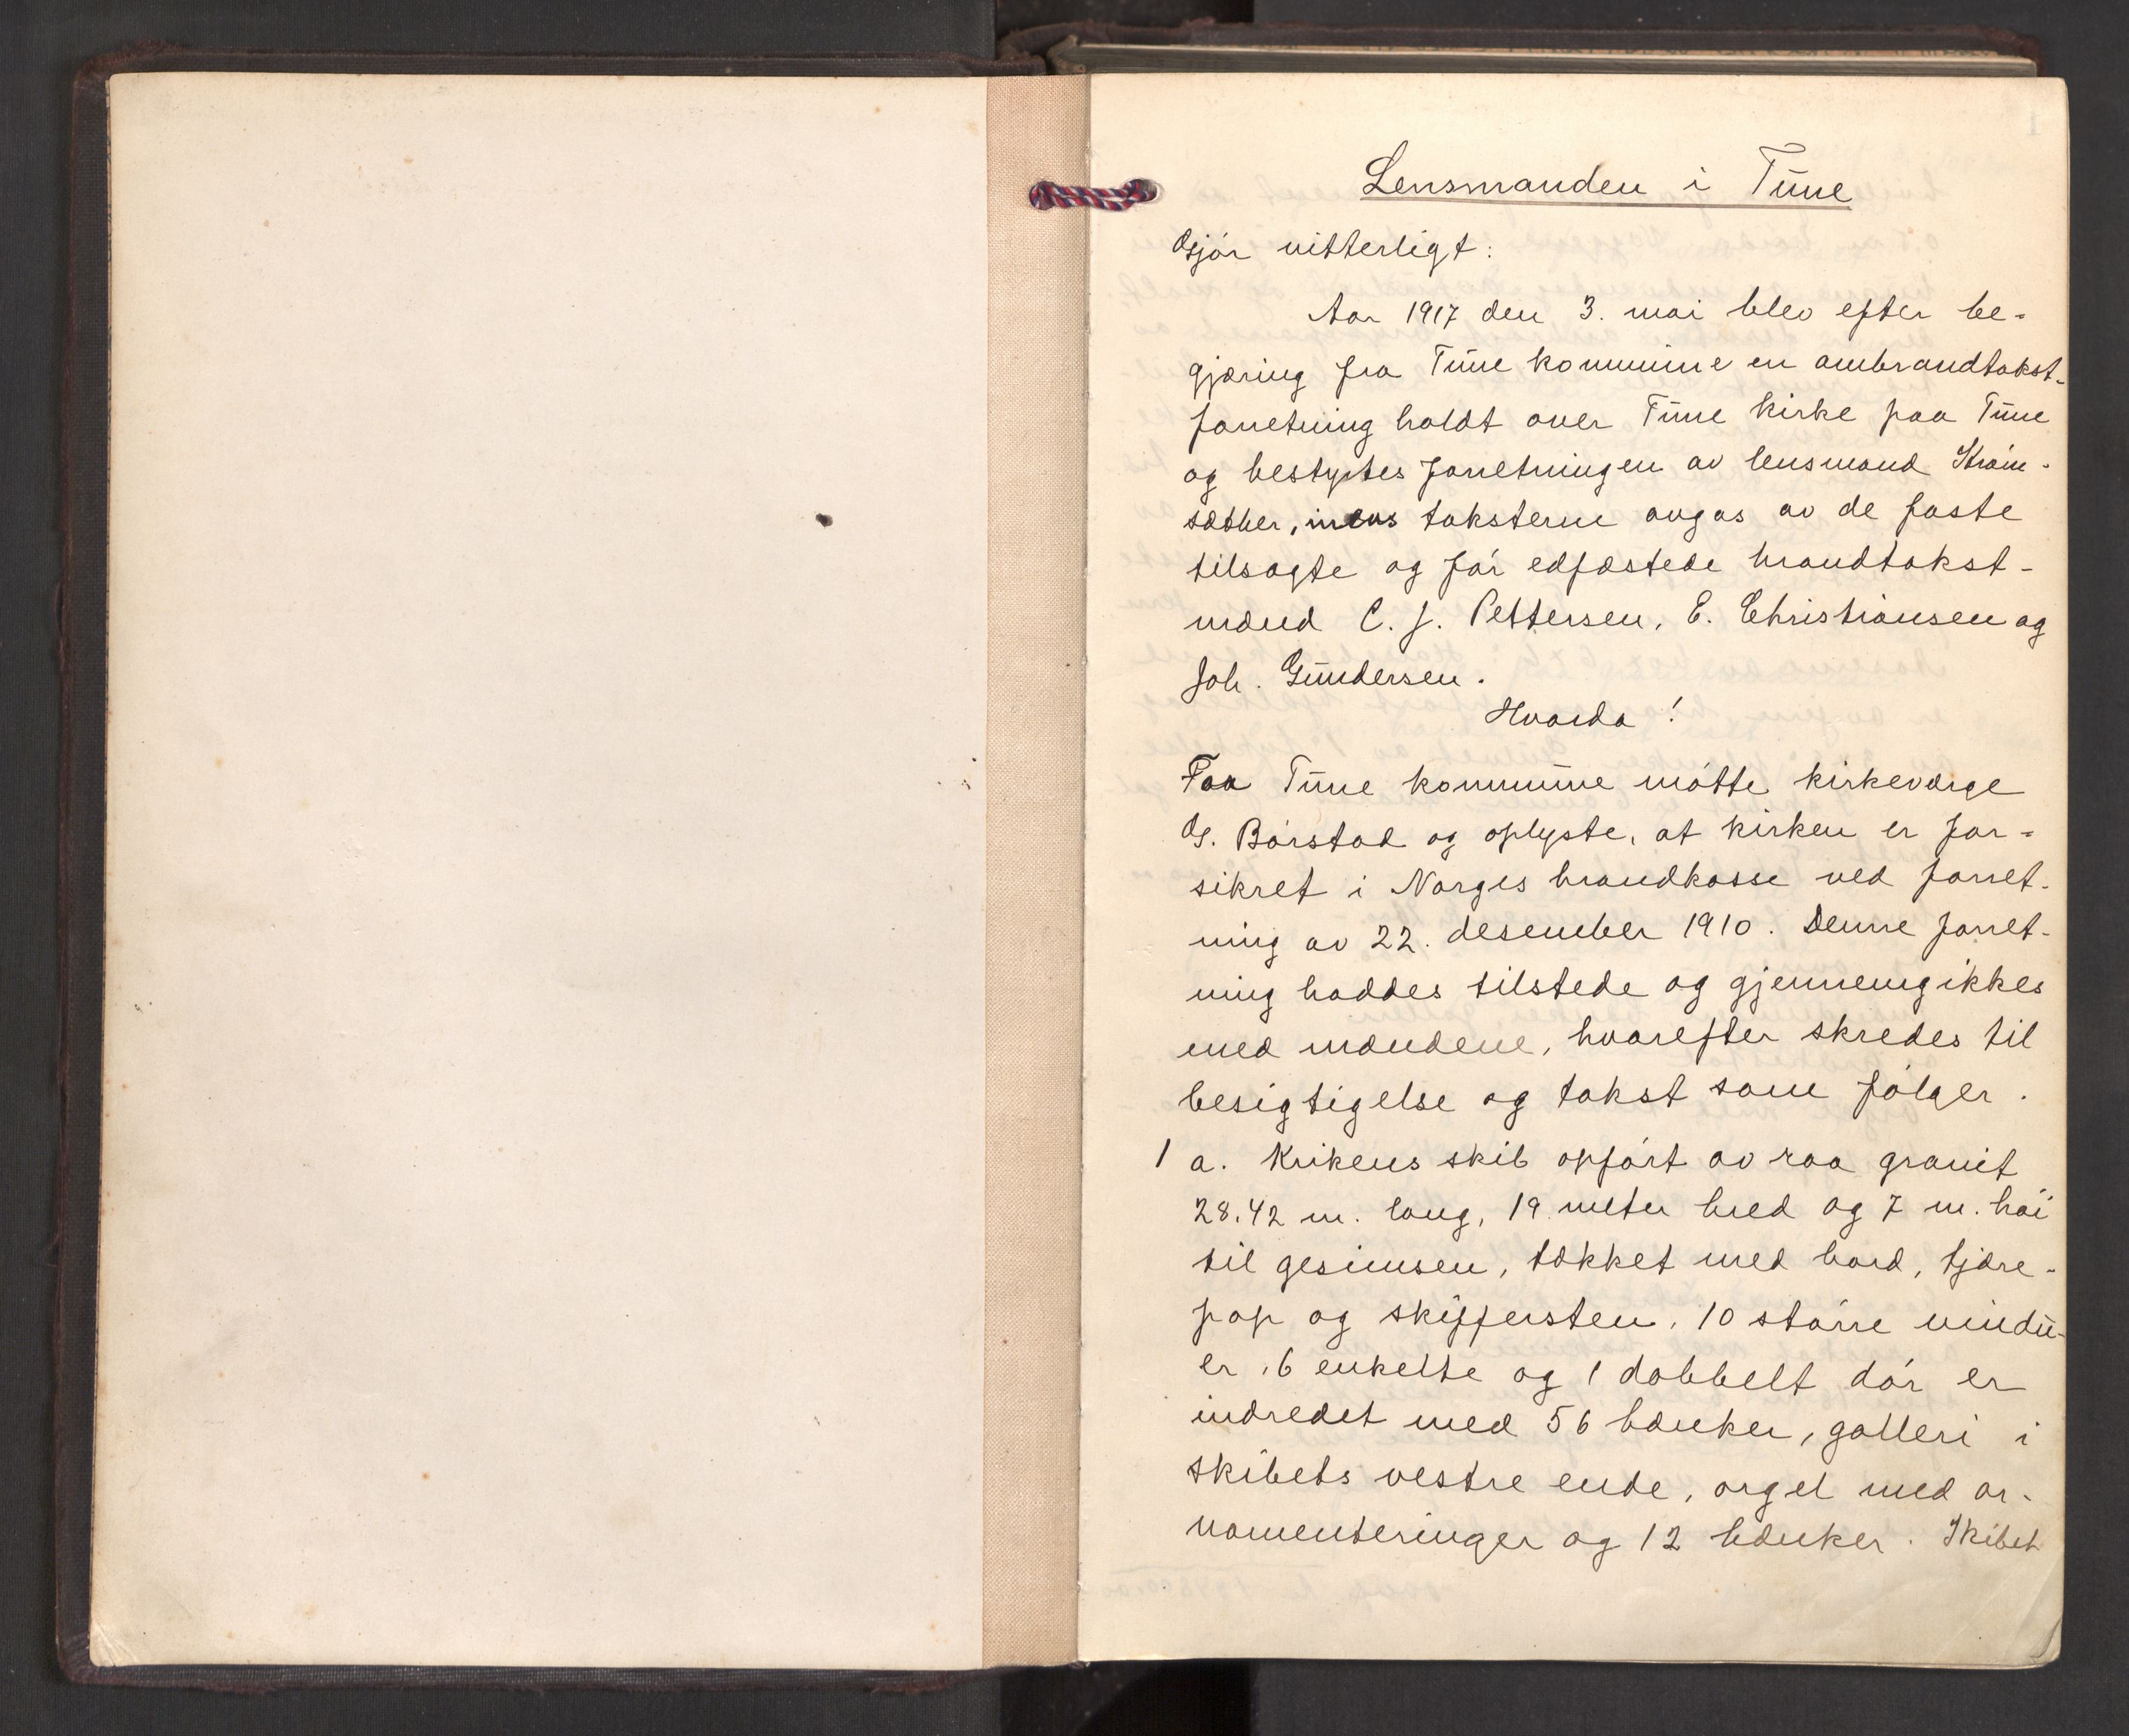 Lensmanden i Tune
Gjør vitterligt:
Aar 1917 den 3. mai blev efter be-
gjæring fra Tune kommune en ombrandtakst-
forretning holdt over Tune kirke paa Tune
og bestyrtes forretningen av lensmand Strøm-
sæther, mens taksterne avgas av de faste
tilsagte og før edfæstede brandtakst-
mænd C. J. Pettersen, E. Christiansen og
Joh. Gundersen.
Hvorda!
For Tune kommune møtte kirkeværge
G. Børstad og oplyste, at kirken er for-
sikret i Norges brandkasse ved forret-
ning av 22. desember 1910. Denne forret-
ning haddes tilstede og gjennemgikkes
med mændene, hvorefter skredes til
besigtigelse og takst som følger.
1 a. Krikens skib opført av raa granit
28.42 m. lang, 19 meter bred og 7 m. høi
til gesimsen, tækket med bord, tjære-
pap og skifersten, 10 større vindu-
er, 6 enkelte og 1 dobbelt dør er
indredet med 56 bænker, galleri i
skibets vestre ende, orgel med or-
namenteringer og 12 bænker. Skibet